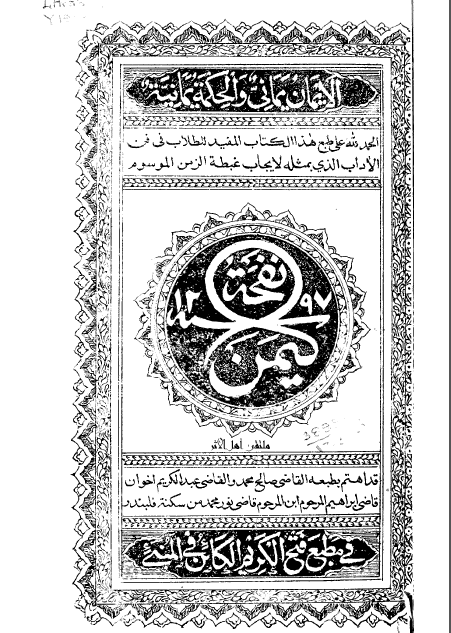 الايمان يماني والحكمة يمانية
الحمد لله على طبع هذا الكتاب المفيد للطلاب في فن
الآداب الذي بمثله لايجاب غبطة الزمن الموسوم
نفحة
١٢ ٩٧
سنه
اليمن
ملتقى أهل الأثر
قد اهتم بطبعه القاضي صالح محمد والقاضي عبد الكريم اخوان
قاضي ابراهيم المرحوم ابن المرحوم قاضي نور محمد من سكنة فلبندر
في مطبع فتح الكريم الكائن في المنبئ